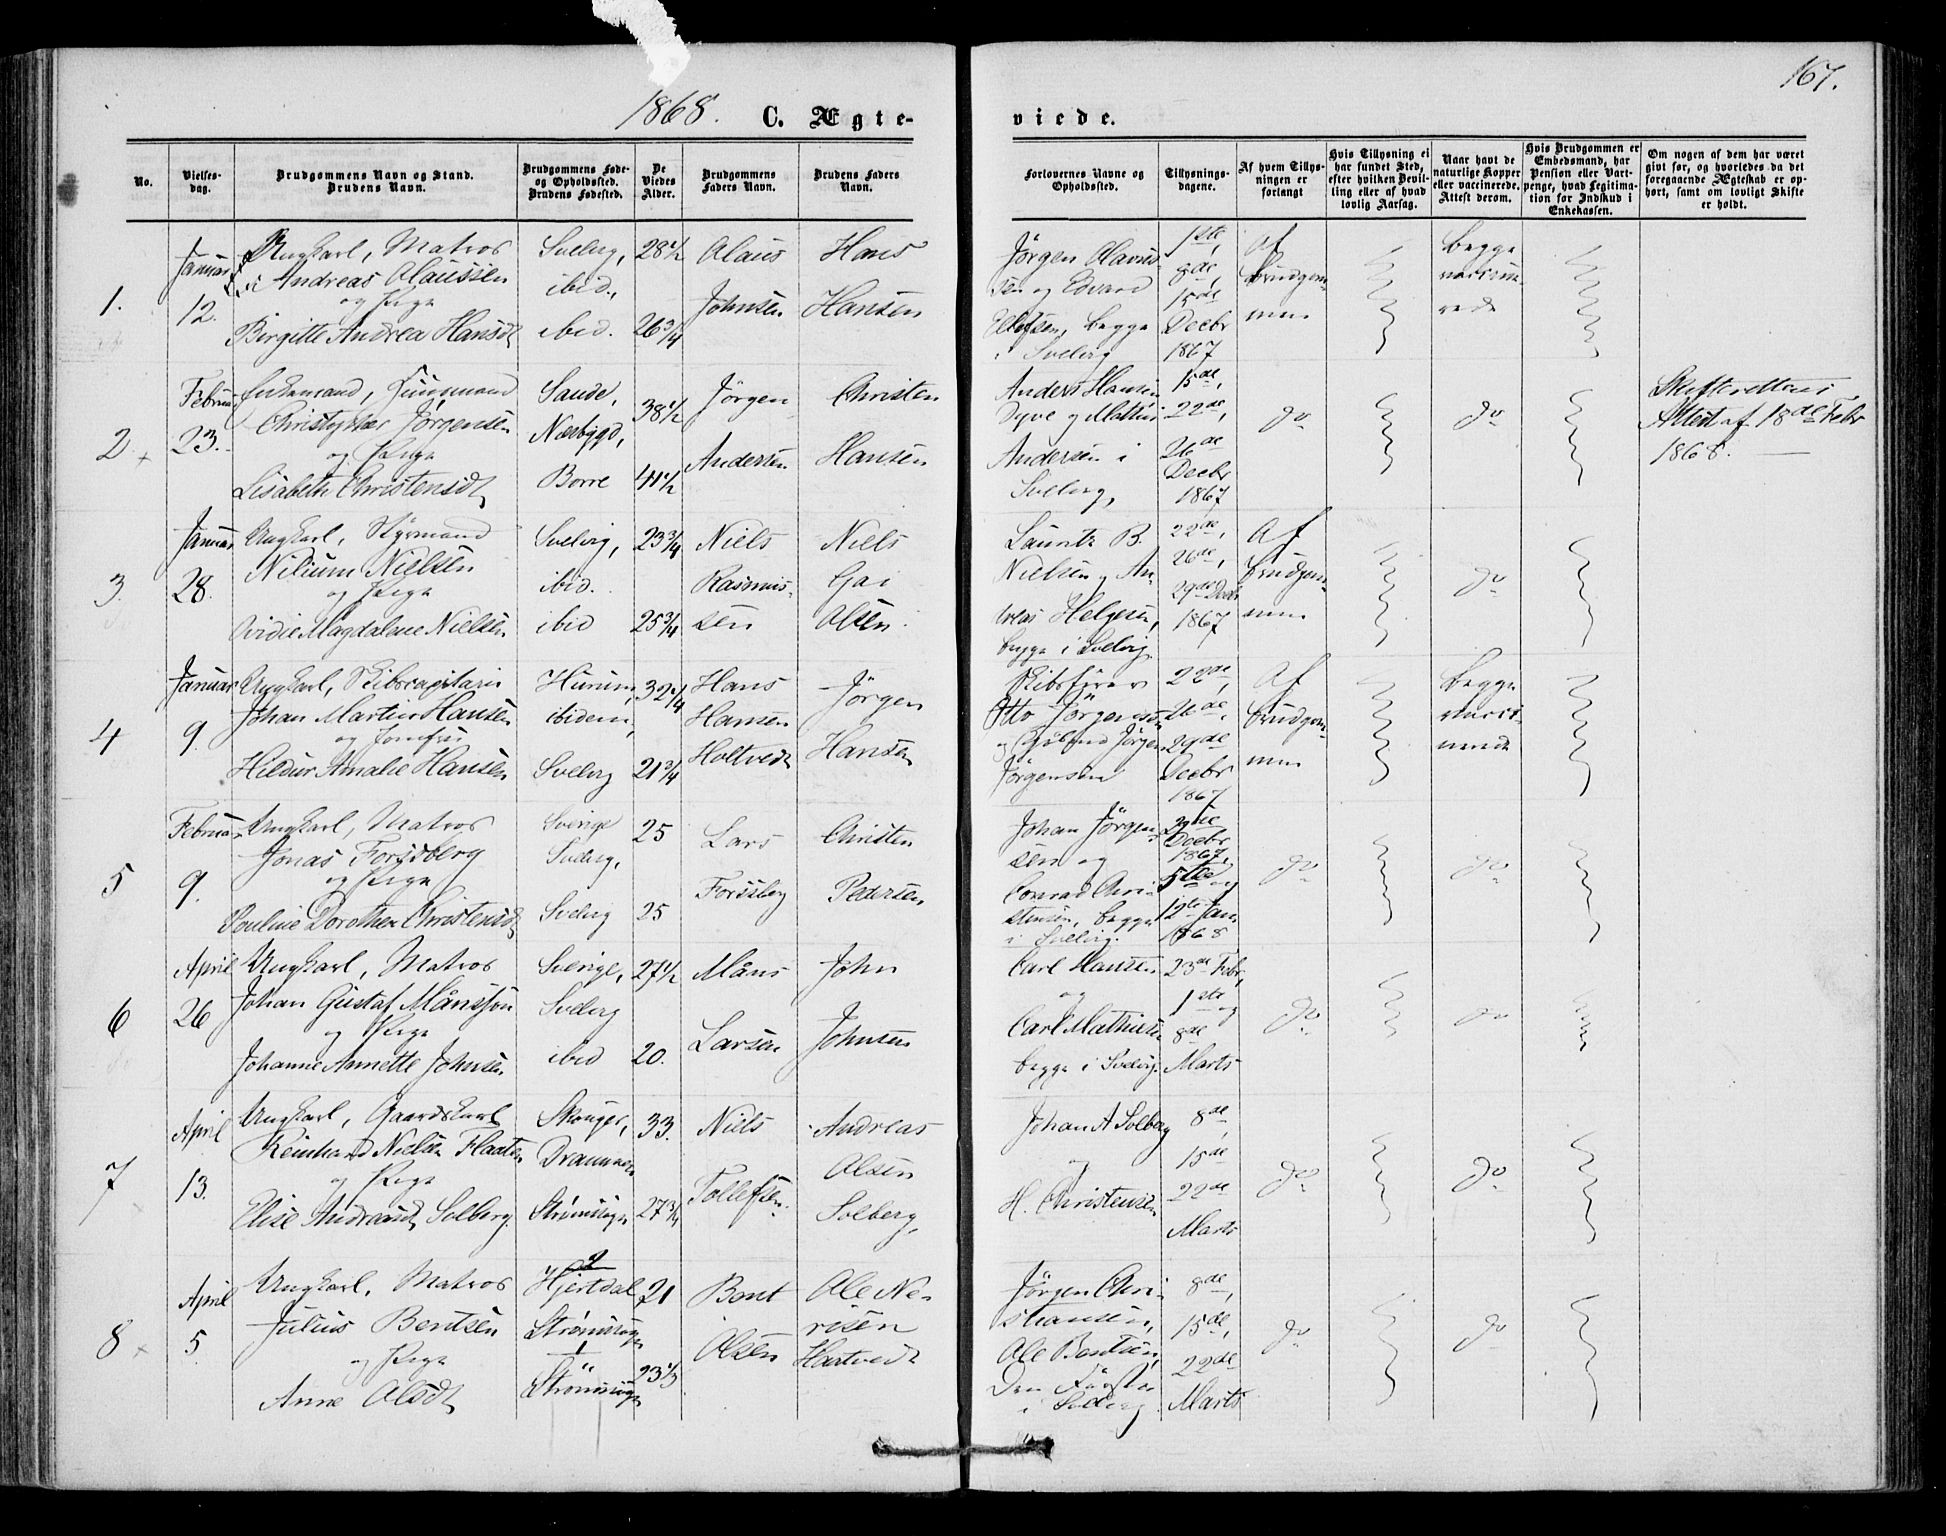 167.
1868. C. Ægte-
viede.
No.
Vielses-
dag.
Brudgommens Navn og Stand.
Brudens Navn.
Brudgommens Føde-
og Opholdssted.
Brudens Fødested.
De
Viedes
Alder.
Brudgommens
Faders Navn.
Brudens Faders
Navn.
Forlovernes Navne og
Opholdssted.
Tillysnings-
dagene.
Af hvem Tillys-
ningen er
forlangt
Hvis Tillysning ei
har fundet Sted,
efter hvilken Bevil-
ling eller af hvad
lovlig Aarsag.
Naar havt de
naturlige Kopper
eller vaccinerede.
Attest derom.
Hvis Brudgommen er
Embedsmand, har
Pension eller Vart-
penge, hvad Legitima-
tion for Indskud i
Enkekassen.
Om nogen af dem har været
givt før, og hvorledes da det
foregaaende Ægteskab er op-
hørt, samt om lovligt Skifte
er holdt.
1.
Januar
12.
Ungkarl, Matros
Andreas Olaussen
og Pige
Birgitte Andrea Hansdt
Svelvig,
ibid.,
ibid.
28 1/2
26 3/4
Olaus
Johnsen
Hans
Hansen
Jørgen Olaves-
sen og Edvard
Ellefsen, begge
i Svelvig
1ste,
8de,
15de
Decbr
1867
Af
Brudgom-
men
Begge
vaccine-
rede
2
Februar
23.
Enkemand,
Christopher Jørgensen
og Pige
Lisabeth Christensdt
Sande,
Nærbygd,
Borre
38 1/2
41 1/2
Jørgen
Andersen
Christen
Hansen
Anders Hansen
Dyve og Mathias
Andersen i
Svelvig,
15de,
22de,
26de
Decbr
1867
do
do
Skifterettens
Attest af 18de Febr
1868.
3.
Januar
28.
Ungkarl, Styrmand
Nilium Nielsen
og Pige
Magdalene Nielsen
Svelvig,
ibid.
ibid
23 3/4
25 3/4
Niels
Rasmus-
sen
Niels
Gai
Olsen
Lauritz B.
Nielsen og An-
dreas Helgesen,
begge i Svelvig
22de,
26de,
29de Decbr
1867
Af
Brudgom-
men
do
4
Januar
9.
Ungkarl, Skibscapitain
Johan Martin Hansen
og Jomfru
Hildur Amalie Hansen
Hurum,
ibidem,
Svelvig
32 1/4
21 3/4
Hans
Hansen
Holtvedt
Jørgen
Hansen
Skibsfører
Otto Jørgensen
og Jørgen
Jørgensen
22de,
26de,
29de
Decbr
1867
Af
Brudgom-
men
Begge
vacci-
nerede
5
Februar
9.
Ungkarl, Matros
Jonas Forssberg
og Pige
Pauline Dorothea Christensdt
Sverige
Svelvig,
Svelvig
25
25
Lars
Forssberg
Christen
Pedersen
Johan Jørgen-
sen og
Conrad Chri-
stensen, begge
i Svelvig.
29de
Decbr
1867,
5te og
12te Jan
1868
do
do
6
April
26
Ungkarl, Matros
Johan Gustaf Månsson
og Pige
Johanne Annette Johnsen
Sverige,
Svelvig
ibid
27 1/2
20.
Måns
Larsen
John
Johnsen
Carl Hansen
og
Carl Mathisen
begge i Svelvig.
23de Febr,
1ste og
8de
Marts
do
do
7
April
13.
Ungkarl, Gaardskarl
Reinhard Nielsen Flaaten
og Pige
Elise Andreasdt Solberg.
Skouger,
Drammen
Strømsogn
33.
27 3/4
Niels
Tollefsen.
Andreas
Olsen
Solberg,
Johan A Solberg
og
H. Christensen
8de,
15de
22de
Marts
do
do
8
April
5.
Ungkarl, Matros
Julius Bentsen
og Pige
Anne Olsdt
Hjertdal
Strømsogn
Strømsogn
21
23 1/3
Bent
Olsen
Ole Ne-
risen
Hartvedt
Jørgen Chri-
stiansen,
Ole Bentsen,
Den Første
i Svelvig
8de,
15de,
22de
Marts
do
do